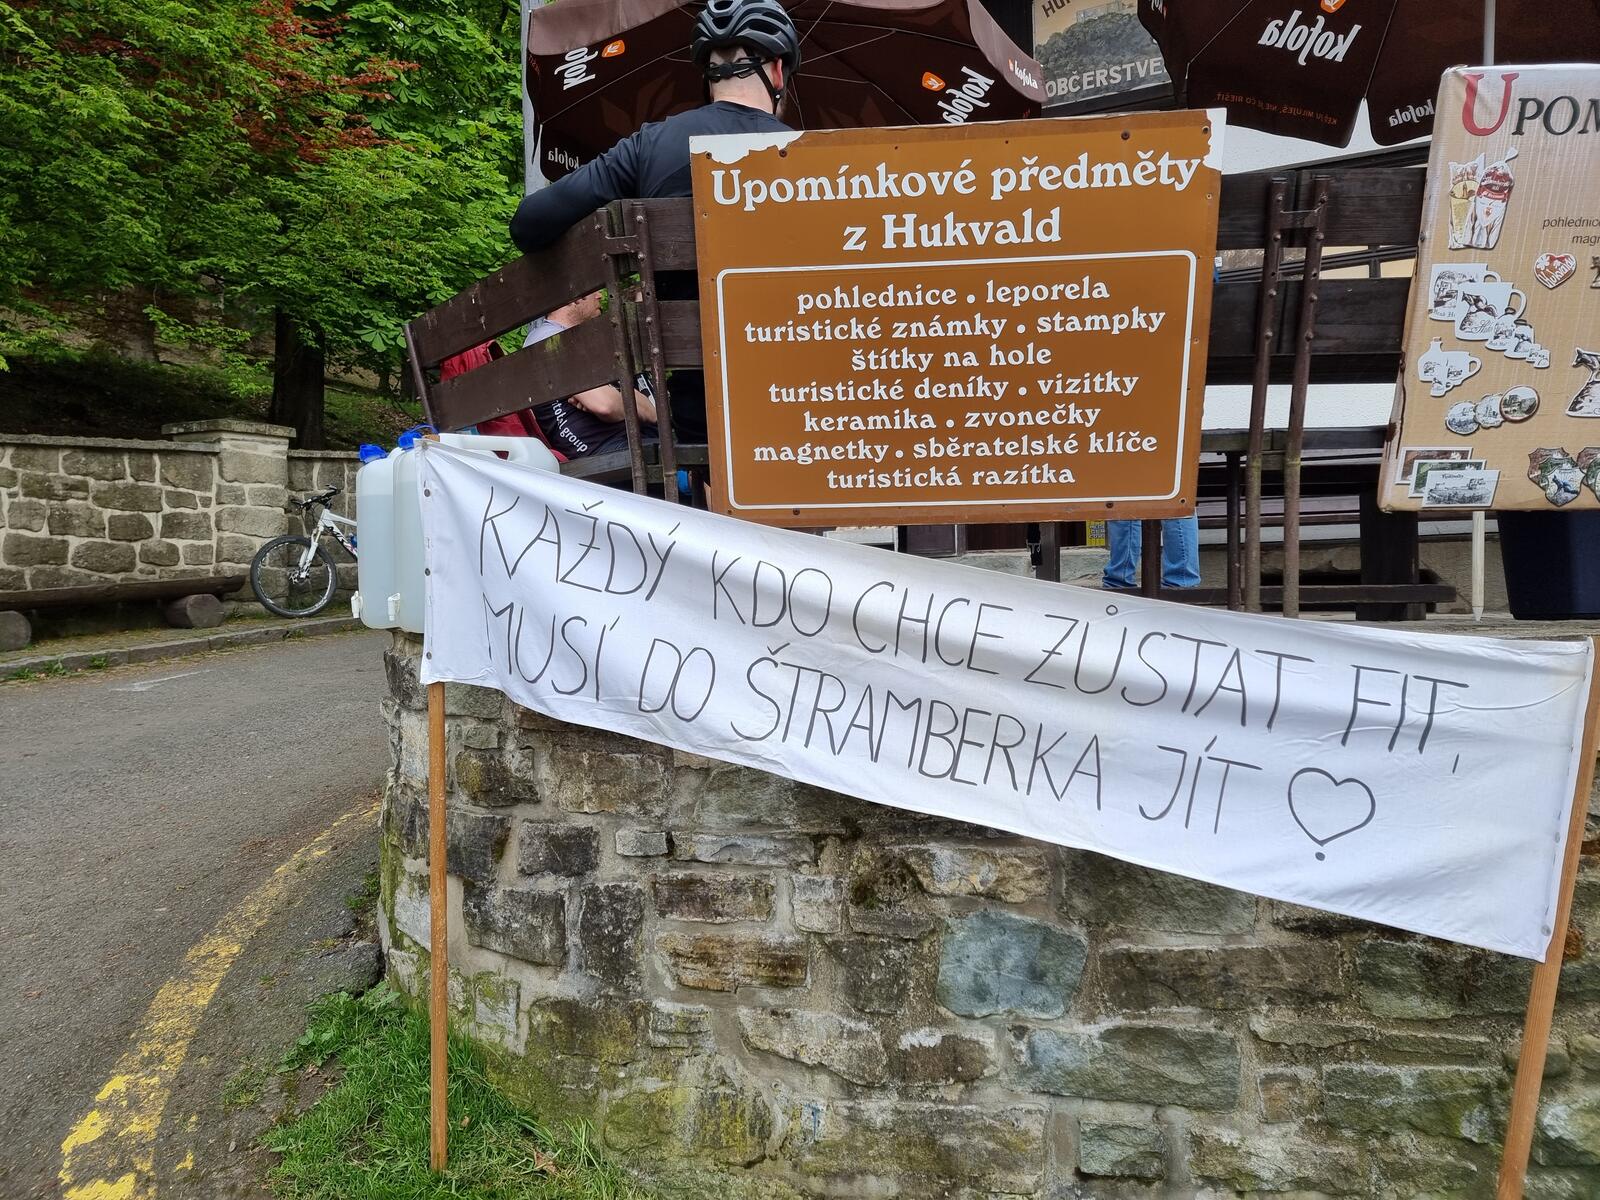 kofola
kofola
kofola
kofola
OBČERSTVE
kofola
kofola
Upomínkové předměty
z Hukvald
pohlednice . leporela
turistické známky . stampky
štítky na hole
turistické deníky . vizitky
keramika . zvonečky
magnetky . sběratelské klíče
turistická razítka
UPOM
pohlednice
magn
total group
KAŽDÝ KDO CHCE ZŮSTAT FIT,
MUSÍ DO ŠTRAMBERKA JÍT